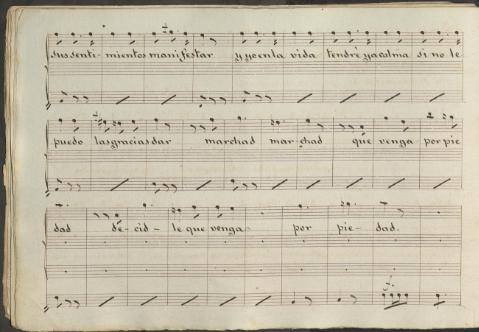 sus senti- mientos manifestar y yo en la vida tendré ya calma si no le
puedo las gracias dar marchad mar-chad que venga por pie
dad de-cid- le que venga por pie- dad.